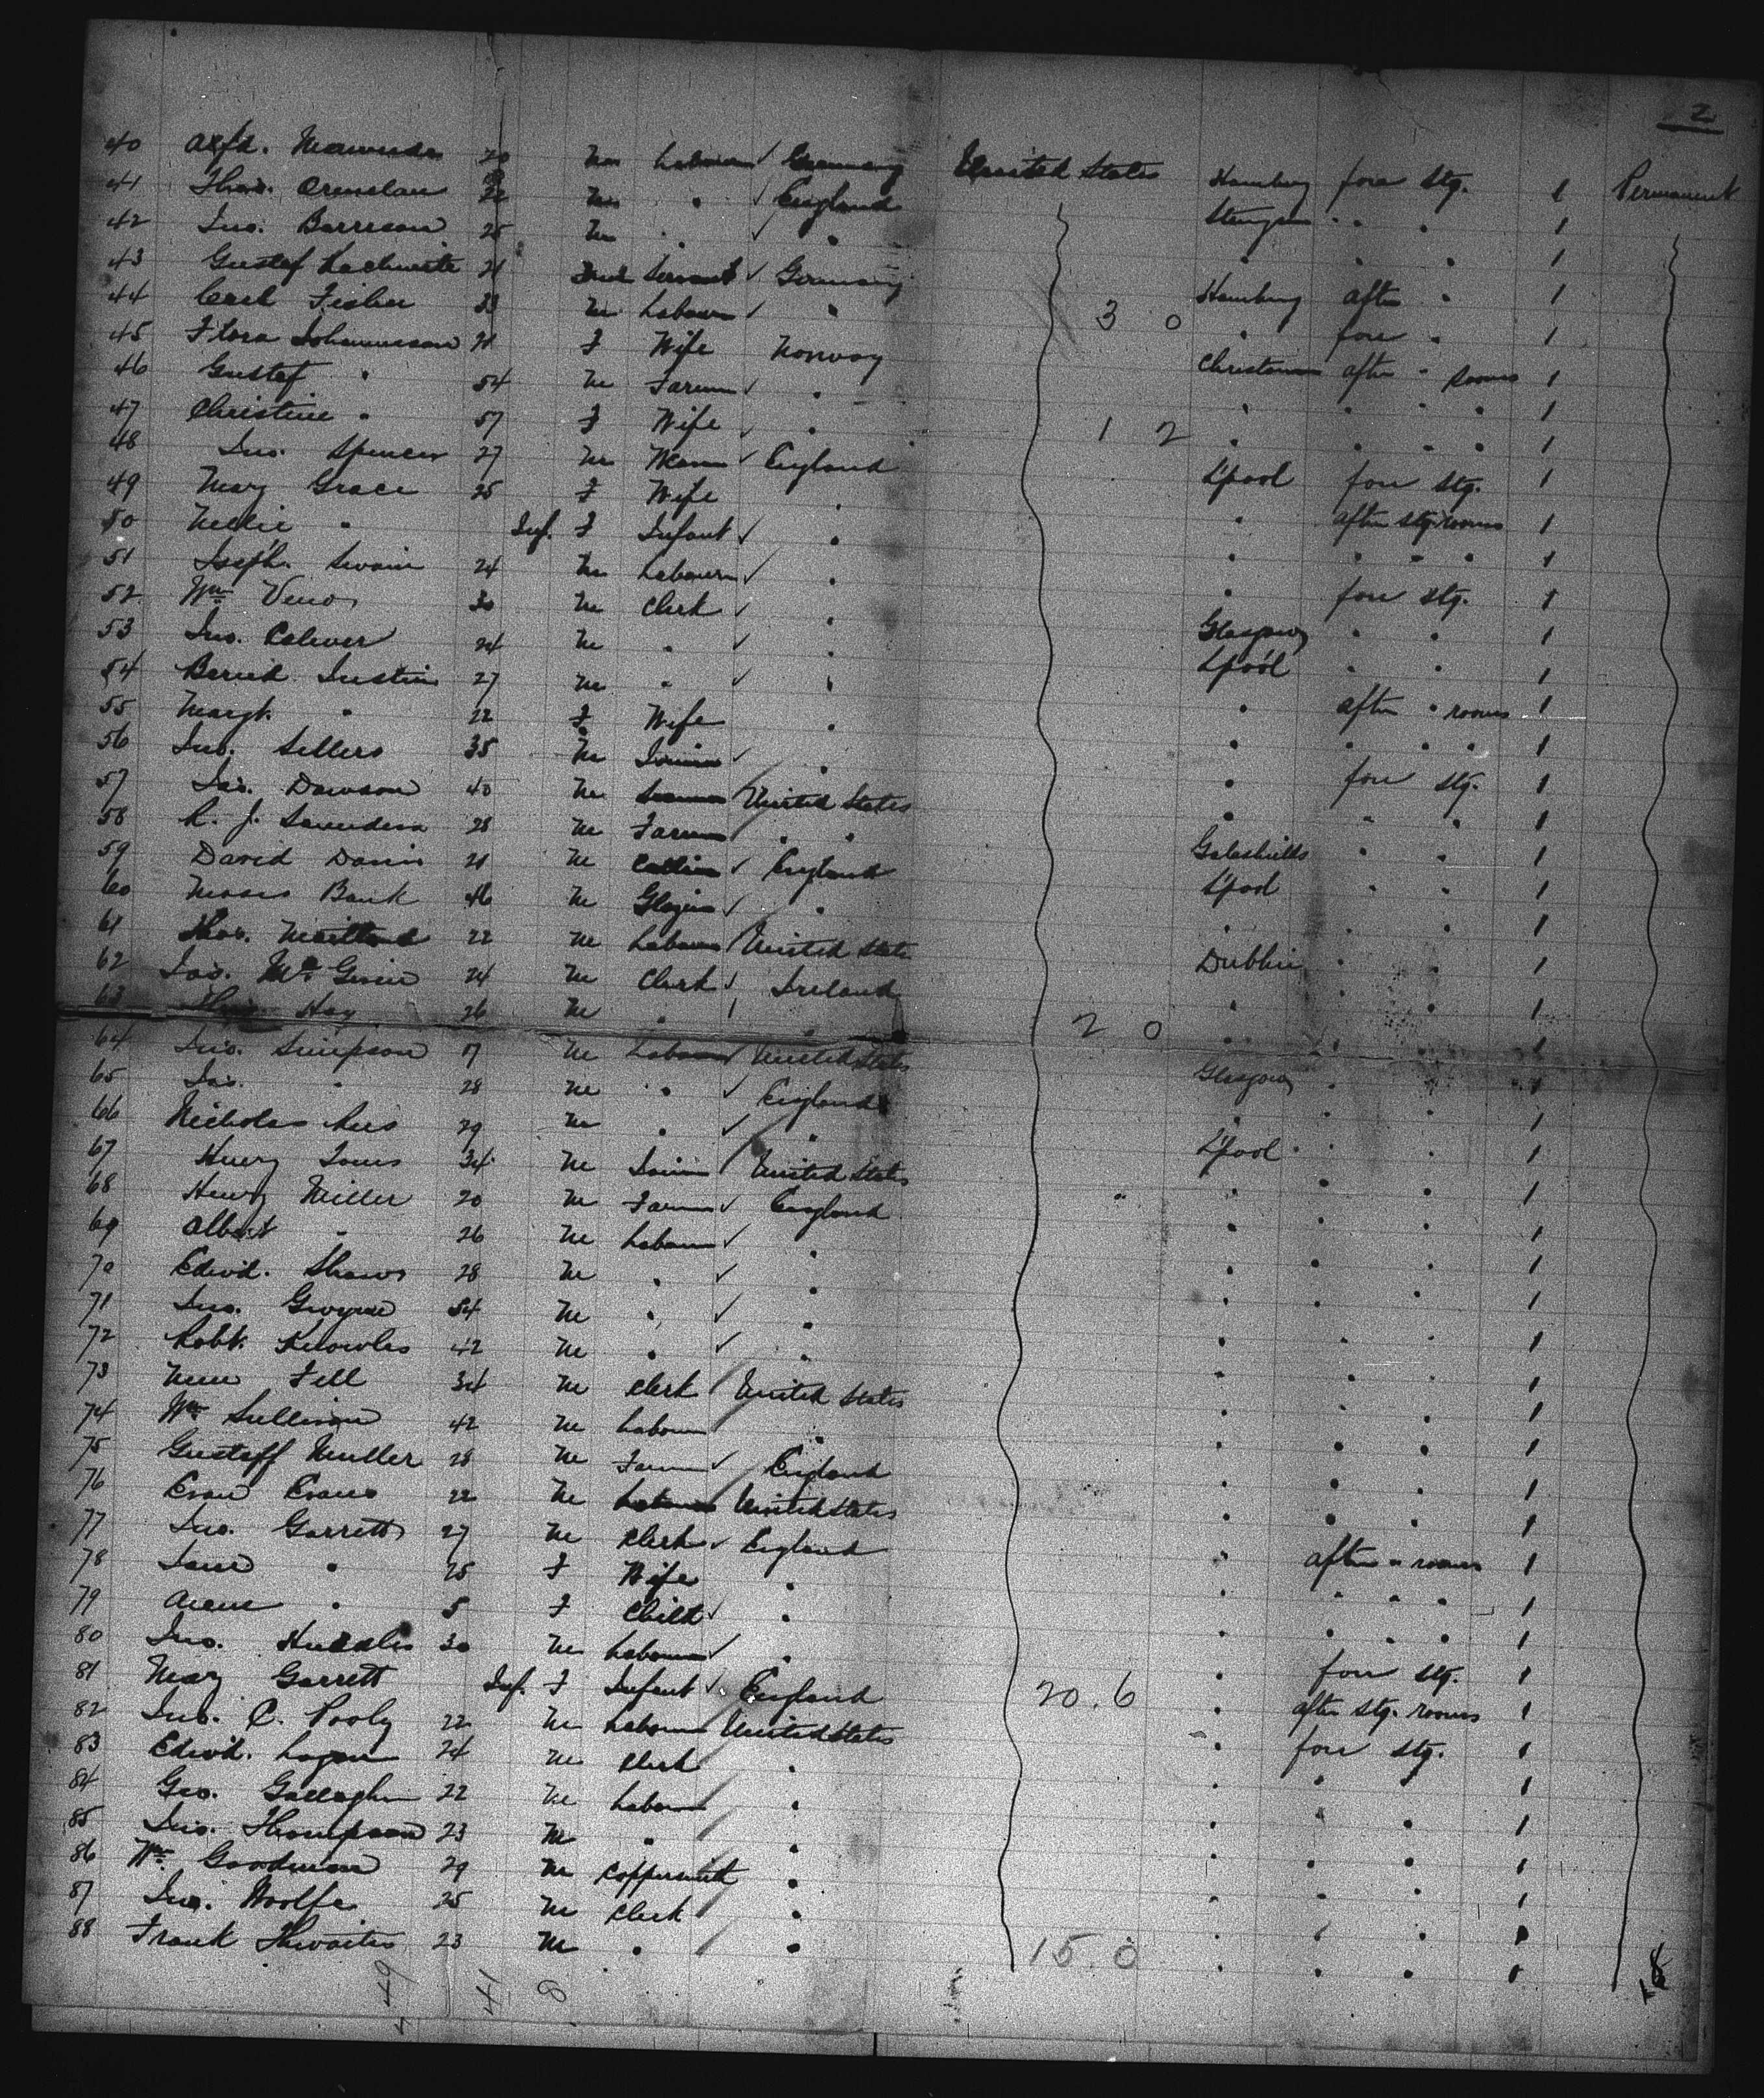 2
40 Alfd. 20 M Labourer ✓ Germany United States Hamburg fore Stg. 1 Permanent
41 Thos. 22 M " ✓ England " " 1
42 Jno. Barrison 25 M " ✓ " " " " 1
43 Gustaf 21 Servant ✓ Germany Hamburg after " 1
44 Carl Fisher 23 M Labourer ✓ " 3 0 " fore " 1
45 Flora Johannesson 21 F Wife Norway Christiania after " rooms 1
46 Gustaf " 54 M Farmer ✓ " " " " " 1
47 Christine " 57 F Wife ✓ " 1 2 " " " " 1
48 Jno. Spencer 27 M ✓ England L'pool fore Stg. 1
49 Mary Grace 25 F Wife " " after Stg. rooms 1
50 Nellie " Inf. F Infant ✓ " " " " " 1
51 Joseph. Swain 24 M Labourer ✓ " " fore Stg. 1
52 Wm 30 M Clerk ✓ " Glasgow " " 1
53 Jno. 24 M " ✓ " L'pool " " 1
54 27 M " ✓ " " after " rooms 1
55 Margt. " 22 F Wife " " " " " 1
56 Jno. Sellers 35 M ✓ " " fore Stg. 1
57 Jas. Dawson 40 M United States " " " 1
58 R. J. Saunders 28 M Farmer " " Galashiels " " 1
59 David Davis 21 M ✓ England L'pool " " 1
60 Moses Bank 46 M Glazier ✓ " " " " 1
61 Thos. Maitland 22 M Labourer United States Dublin " " 1
62 Jas. 24 M Clerk ✓ Ireland " " " 1
63 Hay 26 M " " 2 0 " " " 1
64 Jno. Simpson 17 M Labourer United States Glasgow " " 1
65 Jas. " 28 M " ✓ England " " " 1
66 Nicholas 29 M " ✓ " L'pool " " 1
67 Henry Jones 34 M United States " " " 1
68 Henry Miller 20 M Farmer ✓ England " " " 1
69 Albert " 26 M Labourer ✓ " " " " 1
70 Edwd. Shaws 28 M " ✓ " " " " 1
71 Jno. Gwynne 54 M " ✓ " " " " 1
72 Robt. Knowles 42 M " ✓ " " " " 1
73 Fell 34 M Clerk United States " " " 1
74 Wm Sullivan 42 M Labourer " " " " 1
75 Gustaff Muller 28 M Farmer ✓ England " " " 1
76 Evan Evans 22 M Labourer United States " " " 1
77 Jno. Garrett 27 M Clerk ✓ England " after " rooms 1
78 Jane " 25 F Wife " " " " " 1
79 " 5 F Child ✓ " " " " " 1
80 Jno. 30 M Labourer ✓ " " fore Stg. 1
81 Mary Garrett Inf. F Infant ✓ England 20.6 " after Stg. rooms 1
82 Jno. C. Pooly 22 M Labourer United States " fore Stg. 1
83 Edwd. Logan 24 M Clerk " " " " 1
84 Geo. Gallagher 22 M Labourer " " " " 1
85 Jno. Thompson 23 M " " " " " 1
86 Wm. Goodman 29 M Coppersmith " " " " 1
87 Jno. Woolfe 25 M Clerk " " " " 1
88 Frank Thwaites 23 M " " 15.0 " " " 1
49 41 8